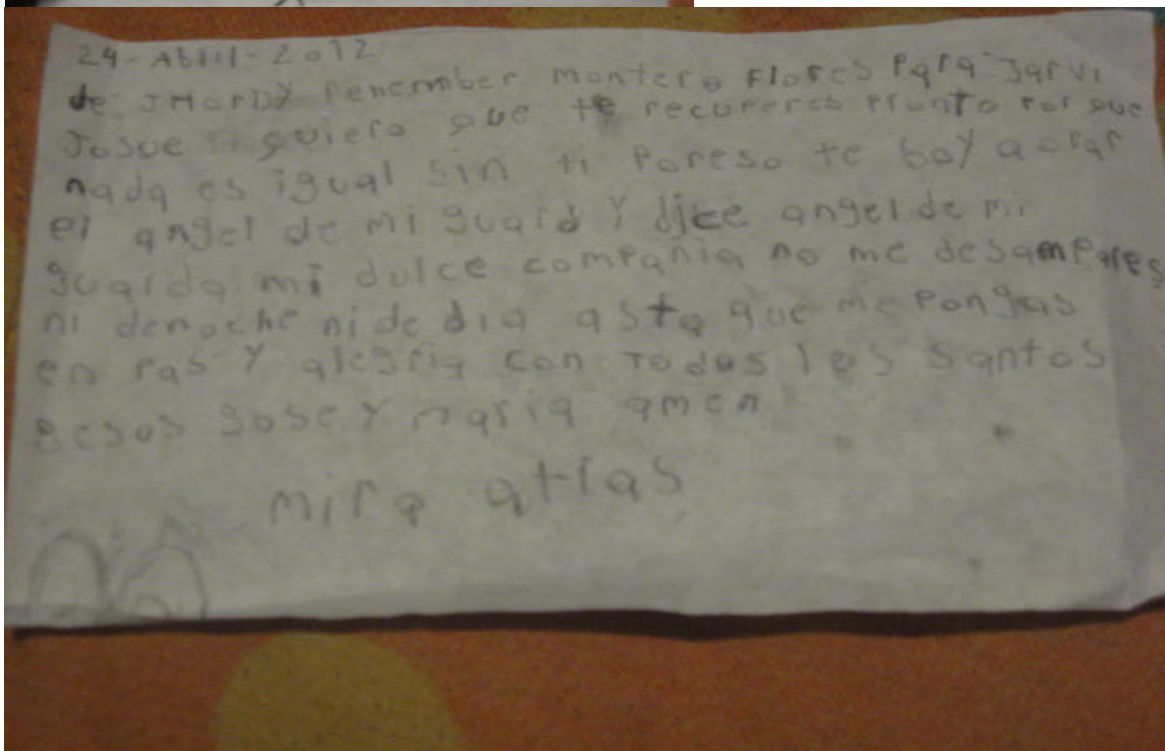 24-Abril-2012
de: JMorDY Renember montero Flores Para: Jarvi
Josue quiero que te recuperes Pronto Por que
nada es igual sin ti Poreso te boy a orar
el angel de mi guard y dice angel de mi
guarda mi dulce compañia no me desampares
ni denoche ni de dia asta que me Pongas
en Pas y alegria con Todos los santos
gesus gose y maria amen
mira atras